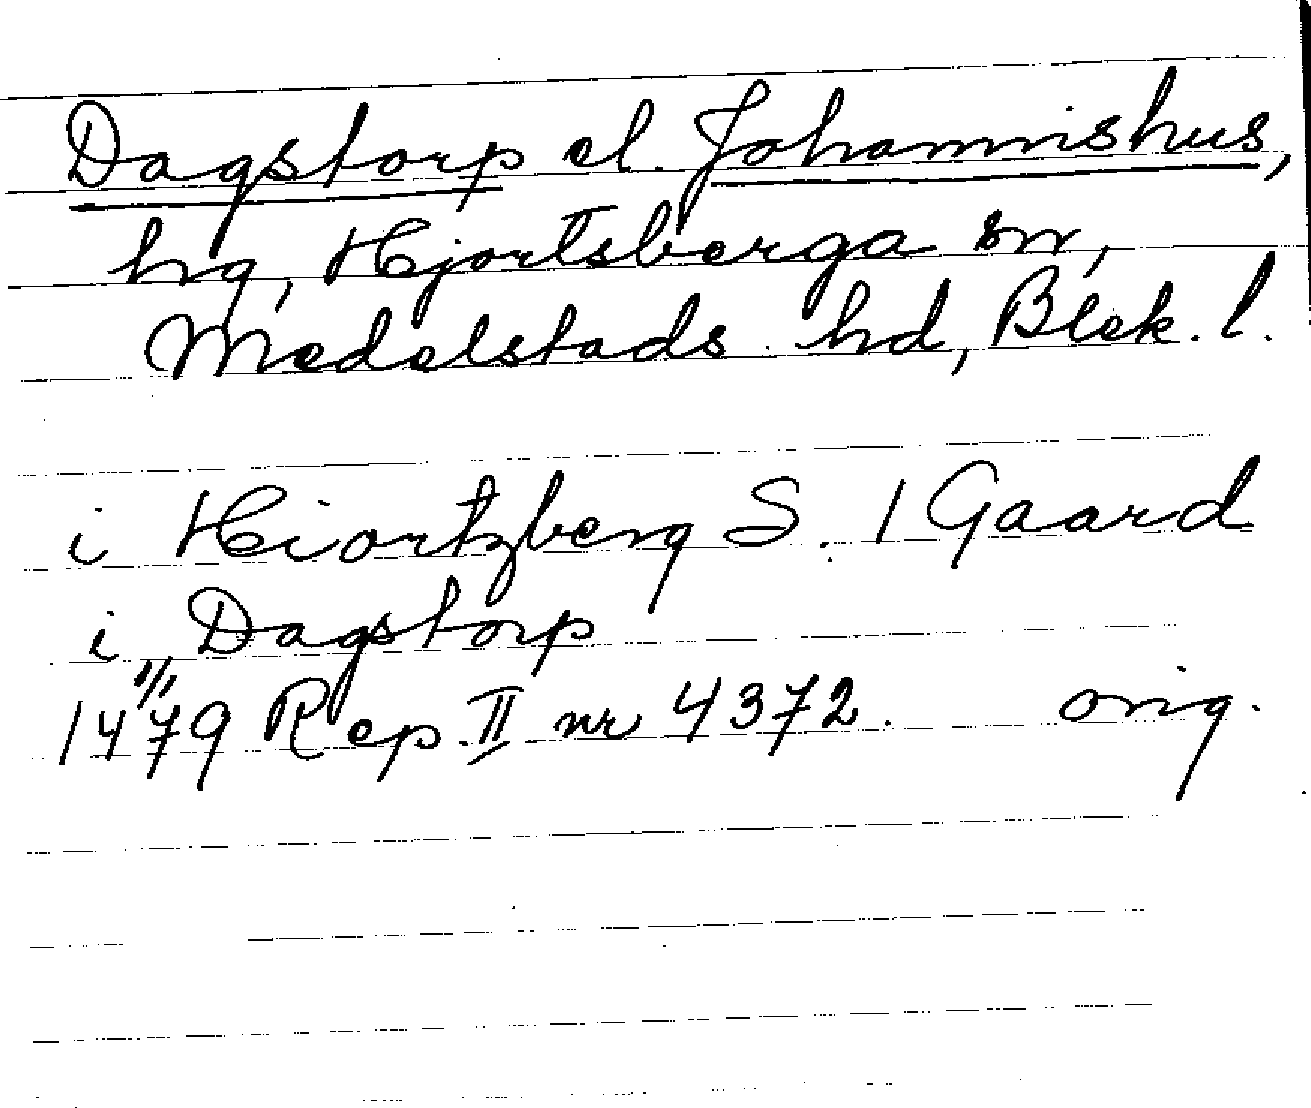 Dagstorp el. Johannishus,
hg, Hjortsberga sn,
Medelstads hd, Blek. l.
i Hiortzberg S. 1 Gaard
i Dagstorp
1479 Rep. II nr 4372. orig.